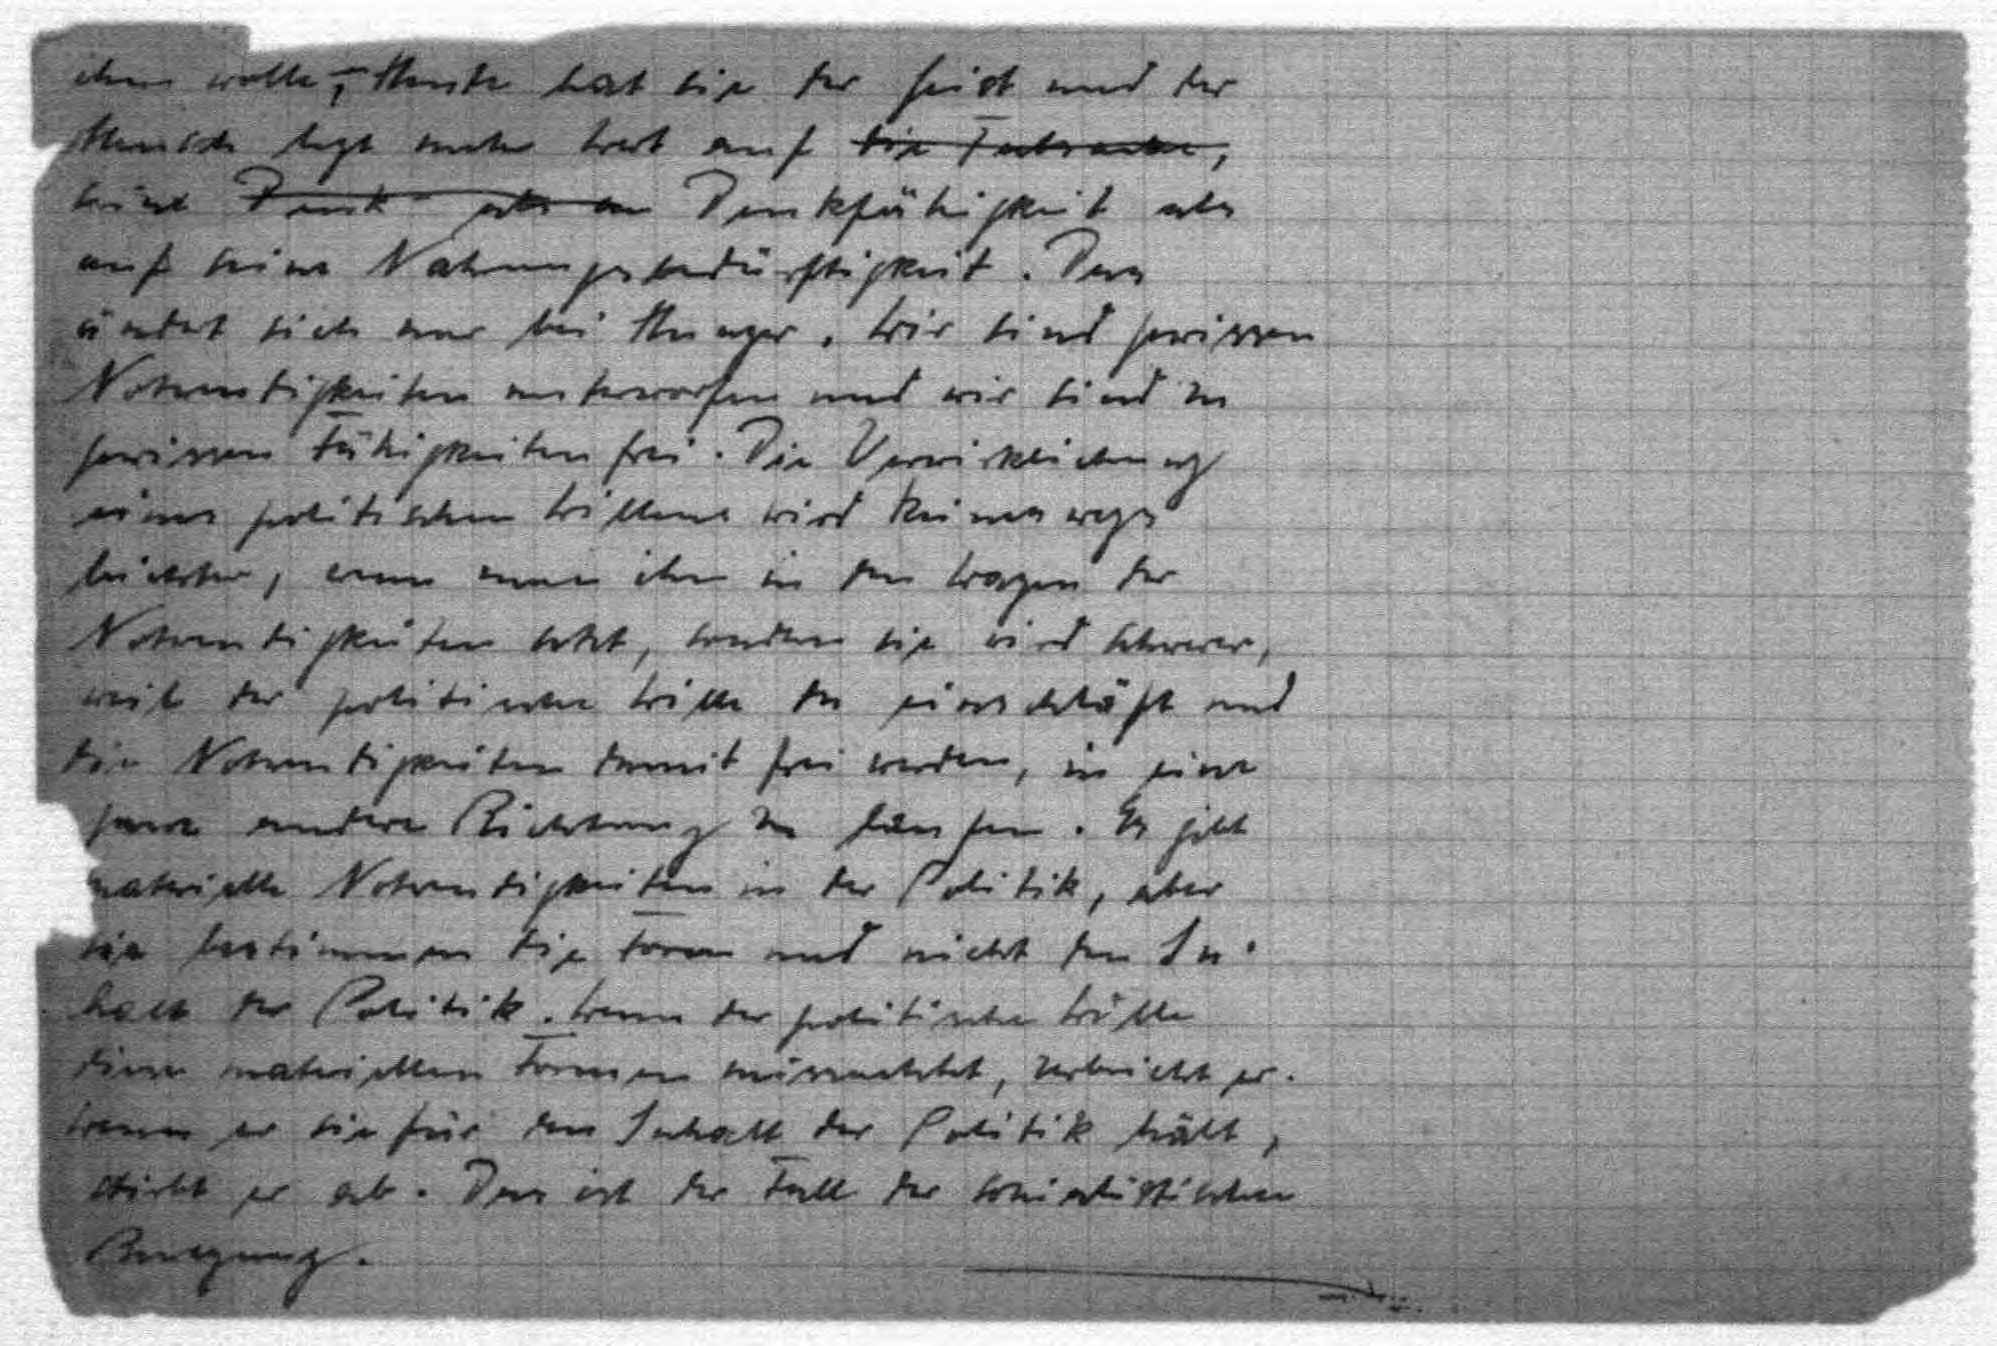 ihm wolle, Heute hat sie der Geist und der
Mensch legt mehr Wert auf die Tatsache,
seine Denk als an Denkfähigkeit als
auf seine Nahrungsbedürftigkeit. Das
ändert sich nur bei Hunger. Wir sind gewissen
Notwendigkeiten unterworfen und wir sind zu
gewissen Fähigkeiten frei. Die Verwirklichung
eines politischen Willens wird keineswegs
leichter, wenn man ihn in den Wagen der
Notwendigkeiten setzt, sondern sie wird schwerer,
weil der politische Wille da einschläft und
die Notwendigkeiten damit frei werden, in eine
ganz andere Richtung zu laufen. Es gibt
materielle Notwendigkeiten in der Politik, aber
sie bestimmen die Form und nicht den In-
halt der Politik. Wenn der politische Wille
diese materiellen Formen missachtet, zerbricht er.
Wenn er sie für den Inhalt der Politik hält,
stirbt er ab. Das ist der Fall der sozialistischen
Bewegung.